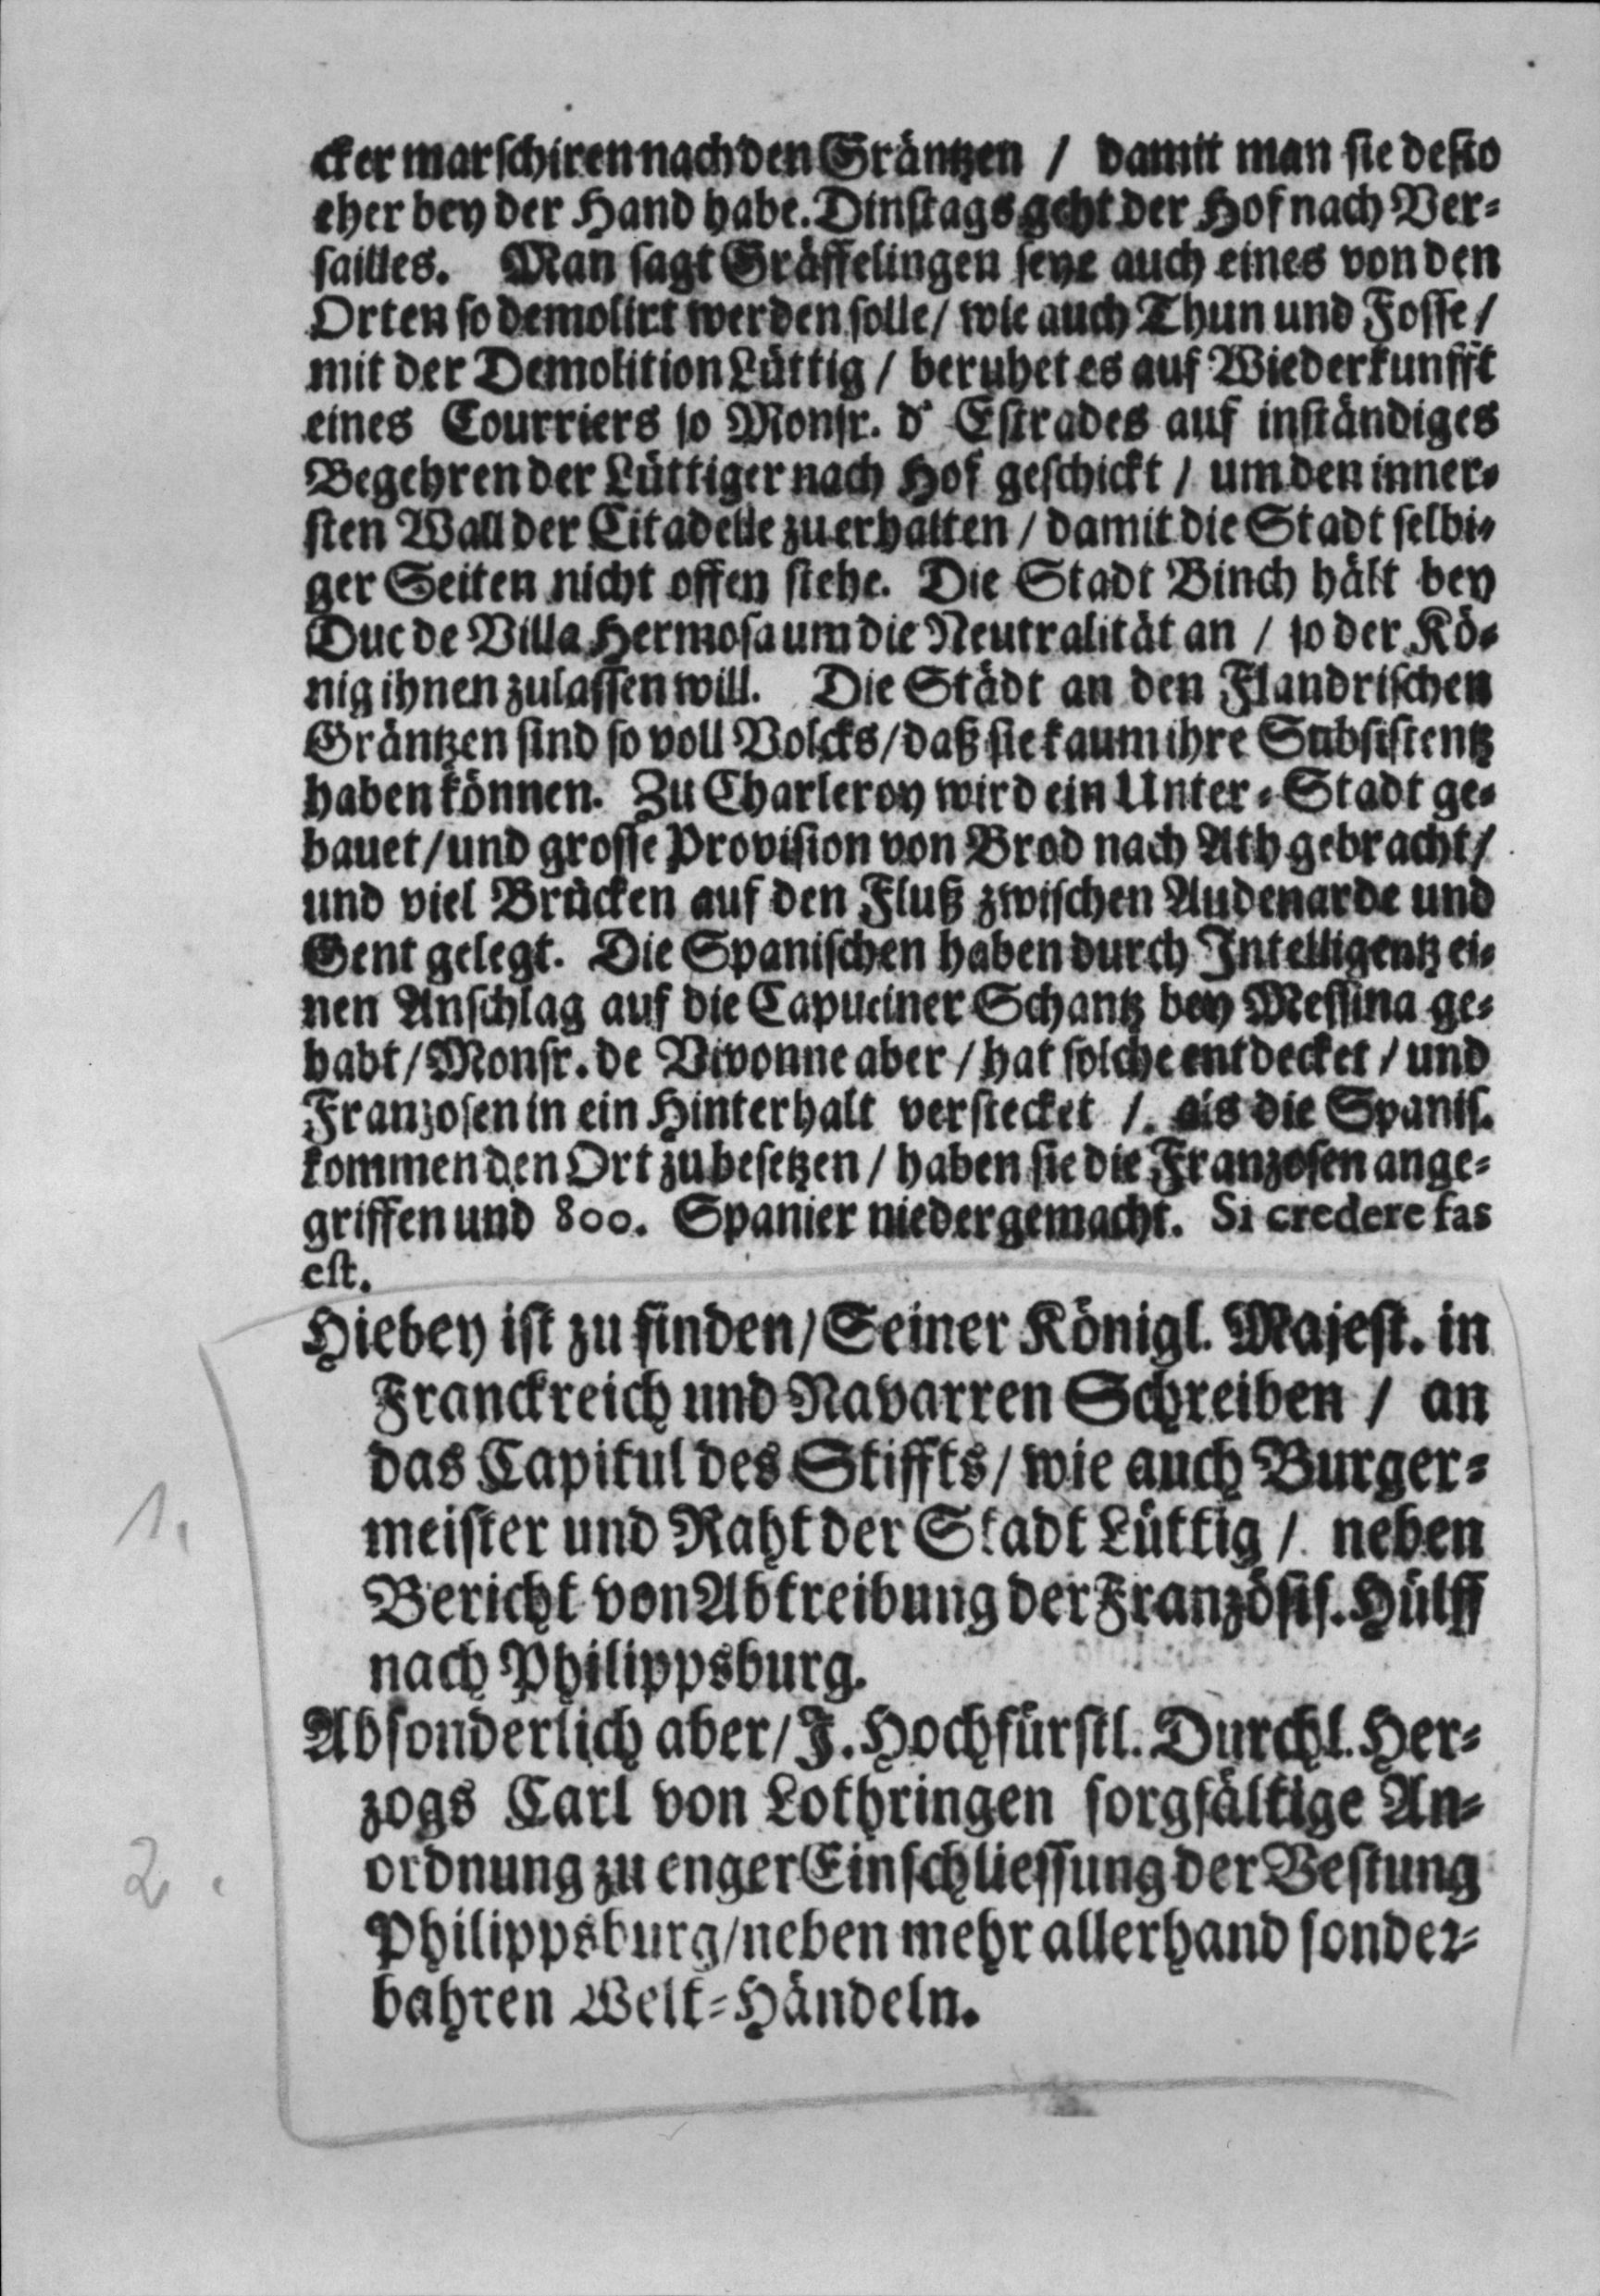 cker marschiren nach den Gräntzen / damit man sie desto
eher bey der Hand habe. Dinstags geht der Hof nach Ver-
sailles. Man sagt Gräffelingen seye auch eines von den
Orten so demolirt werden solle / wie auch Thun und Fosse /
mit der Demolition Lüttig / beruhet es auf Wiederkunfft
eines Courriers so Monsr. d' Estrades auf inständiges
Begehren der Lüttiger nach Hof geschickt / um den inner-
sten Wall der Citadelle zu erhalten / damit die Stadt selbi-
ger Seiten nicht offen stehe. Die Stadt Binch hält bey
Duc de Villa Hermosa um die Neutralität an / so der Kö-
nig ihnen zulassen will. Die Städt an den Flandrischen
Gräntzen sind so voll Volcks / daß sie kaum ihre Subsistentz
haben können. Zu Charleroy wird ein Unter-Stadt ge-
bauet / und grosse Provision von Brod nach Ath gebracht /
und viel Brücken auf den Fluß zwischen Audenarde und
Gent gelegt. Die Spanischen haben durch Intelligentz ei-
nen Anschlag auf die Capuciner Schantz bey Messina ge-
habt / Monsr. de Vivonne aber / hat solche entdecket / und
Franzosen in ein Hinterhalt verstecket /. als die Spanis.
kommen den Ort zu besetzen / haben sie die Franzosen ange-
griffen und 800. Spanier niedergemacht. Si credere fas
est.
Hiebey ist zu finden / Seiner Königl. Majest. in
Franckreich und Navarren Schreiben / an
das Capitul des Stiffts / wie auch Burger-
1. meister und Raht der Stadt Lüttig /. neben
Bericht von Abtreibung der Französis. Hülff
nach Philippsburg.
Absonderlich aber / J. Hochfürstl. Durchl. Her-
zogs Carl von Lothringen sorgfältige An-
2. ordnung zu enger Einschliessung der Vestung
Philippsburg / neben mehr allerhand sonder-
bahren Welt-Händeln.